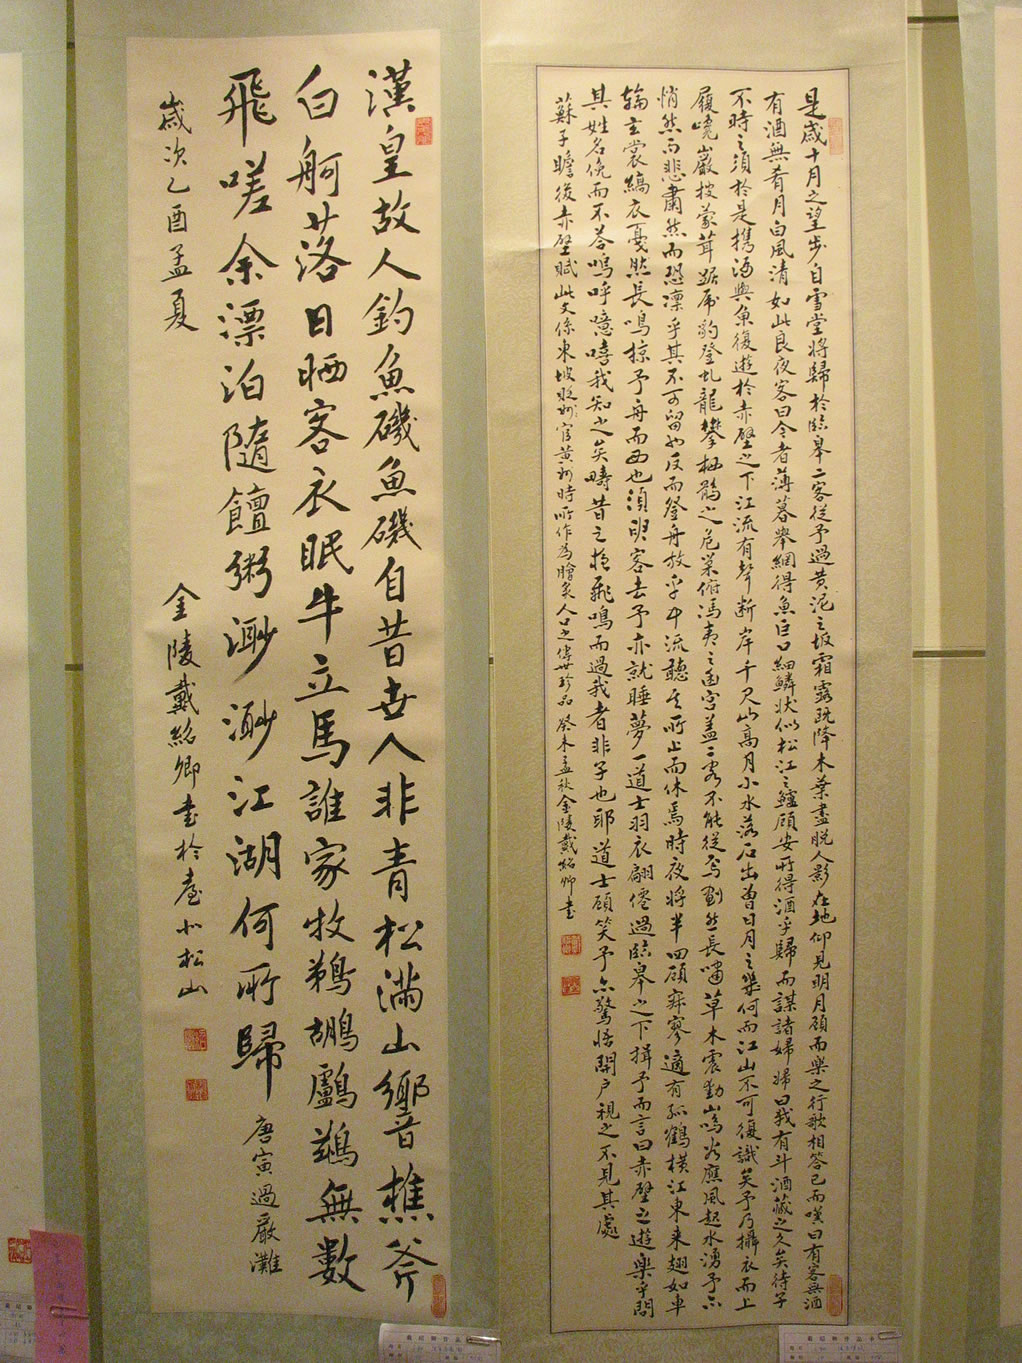 是歲十月之望步自雪堂將歸於臨皋二客從予過黃泥之坂霜露既降木葉盡脫人影在地仰見明月顧而樂之行歌相答已而嘆曰有客無酒
有酒無肴月白風清如此良夜客曰今者薄暮舉網得魚巨口細鱗狀似松江之鱸顧安所得酒乎歸而謀諸婦婦曰我有斗酒藏之久矣待子
不時之須於是攜酒與魚復遊於赤壁之下江流有聲斷岸千尺山高月小水落石出曾日月之幾何而江山不可復識矣予乃攝衣而上
履巉巖披蒙茸踞虎豹登虬龍攀栖鶻之危巢俯馮夷之幽宮蓋二客不能從焉劃然長嘯草木震動山鳴谷應風起水湧予亦
悄然而悲肅然而恐凜乎其不可留也反而登舟放乎中流聽其所止而休焉時夜將半四顧寂寥適有孤鶴橫江東來翅如車
輪玄裳縞衣戛然長鳴掠予舟而西也須臾客去予亦就睡夢一道士羽衣翩僊過臨皋之下揖予而言曰赤壁之遊樂乎問
其姓名俛而不答嗚呼噫嘻我知之矣疇昔之夜飛鳴而過我者非子也耶道士顧笑予亦驚悟開戶視之不見其處
蘇子瞻後赤壁賦此文係東坡貶官黃州時所作為膾炙人口之傳世珍品癸未孟秋金陵戴紹卿書
漢皇故人釣魚磯魚磯自昔世人非青松滿山響樵斧
白舸落日晒客衣眠牛立馬誰家牧鵜鶘鸕鷀無數
飛嗟余漂泊隨饘粥渺渺江湖何所歸 唐寅過嚴灘
歲次乙酉孟夏 金陵戴紹卿書於臺北松山